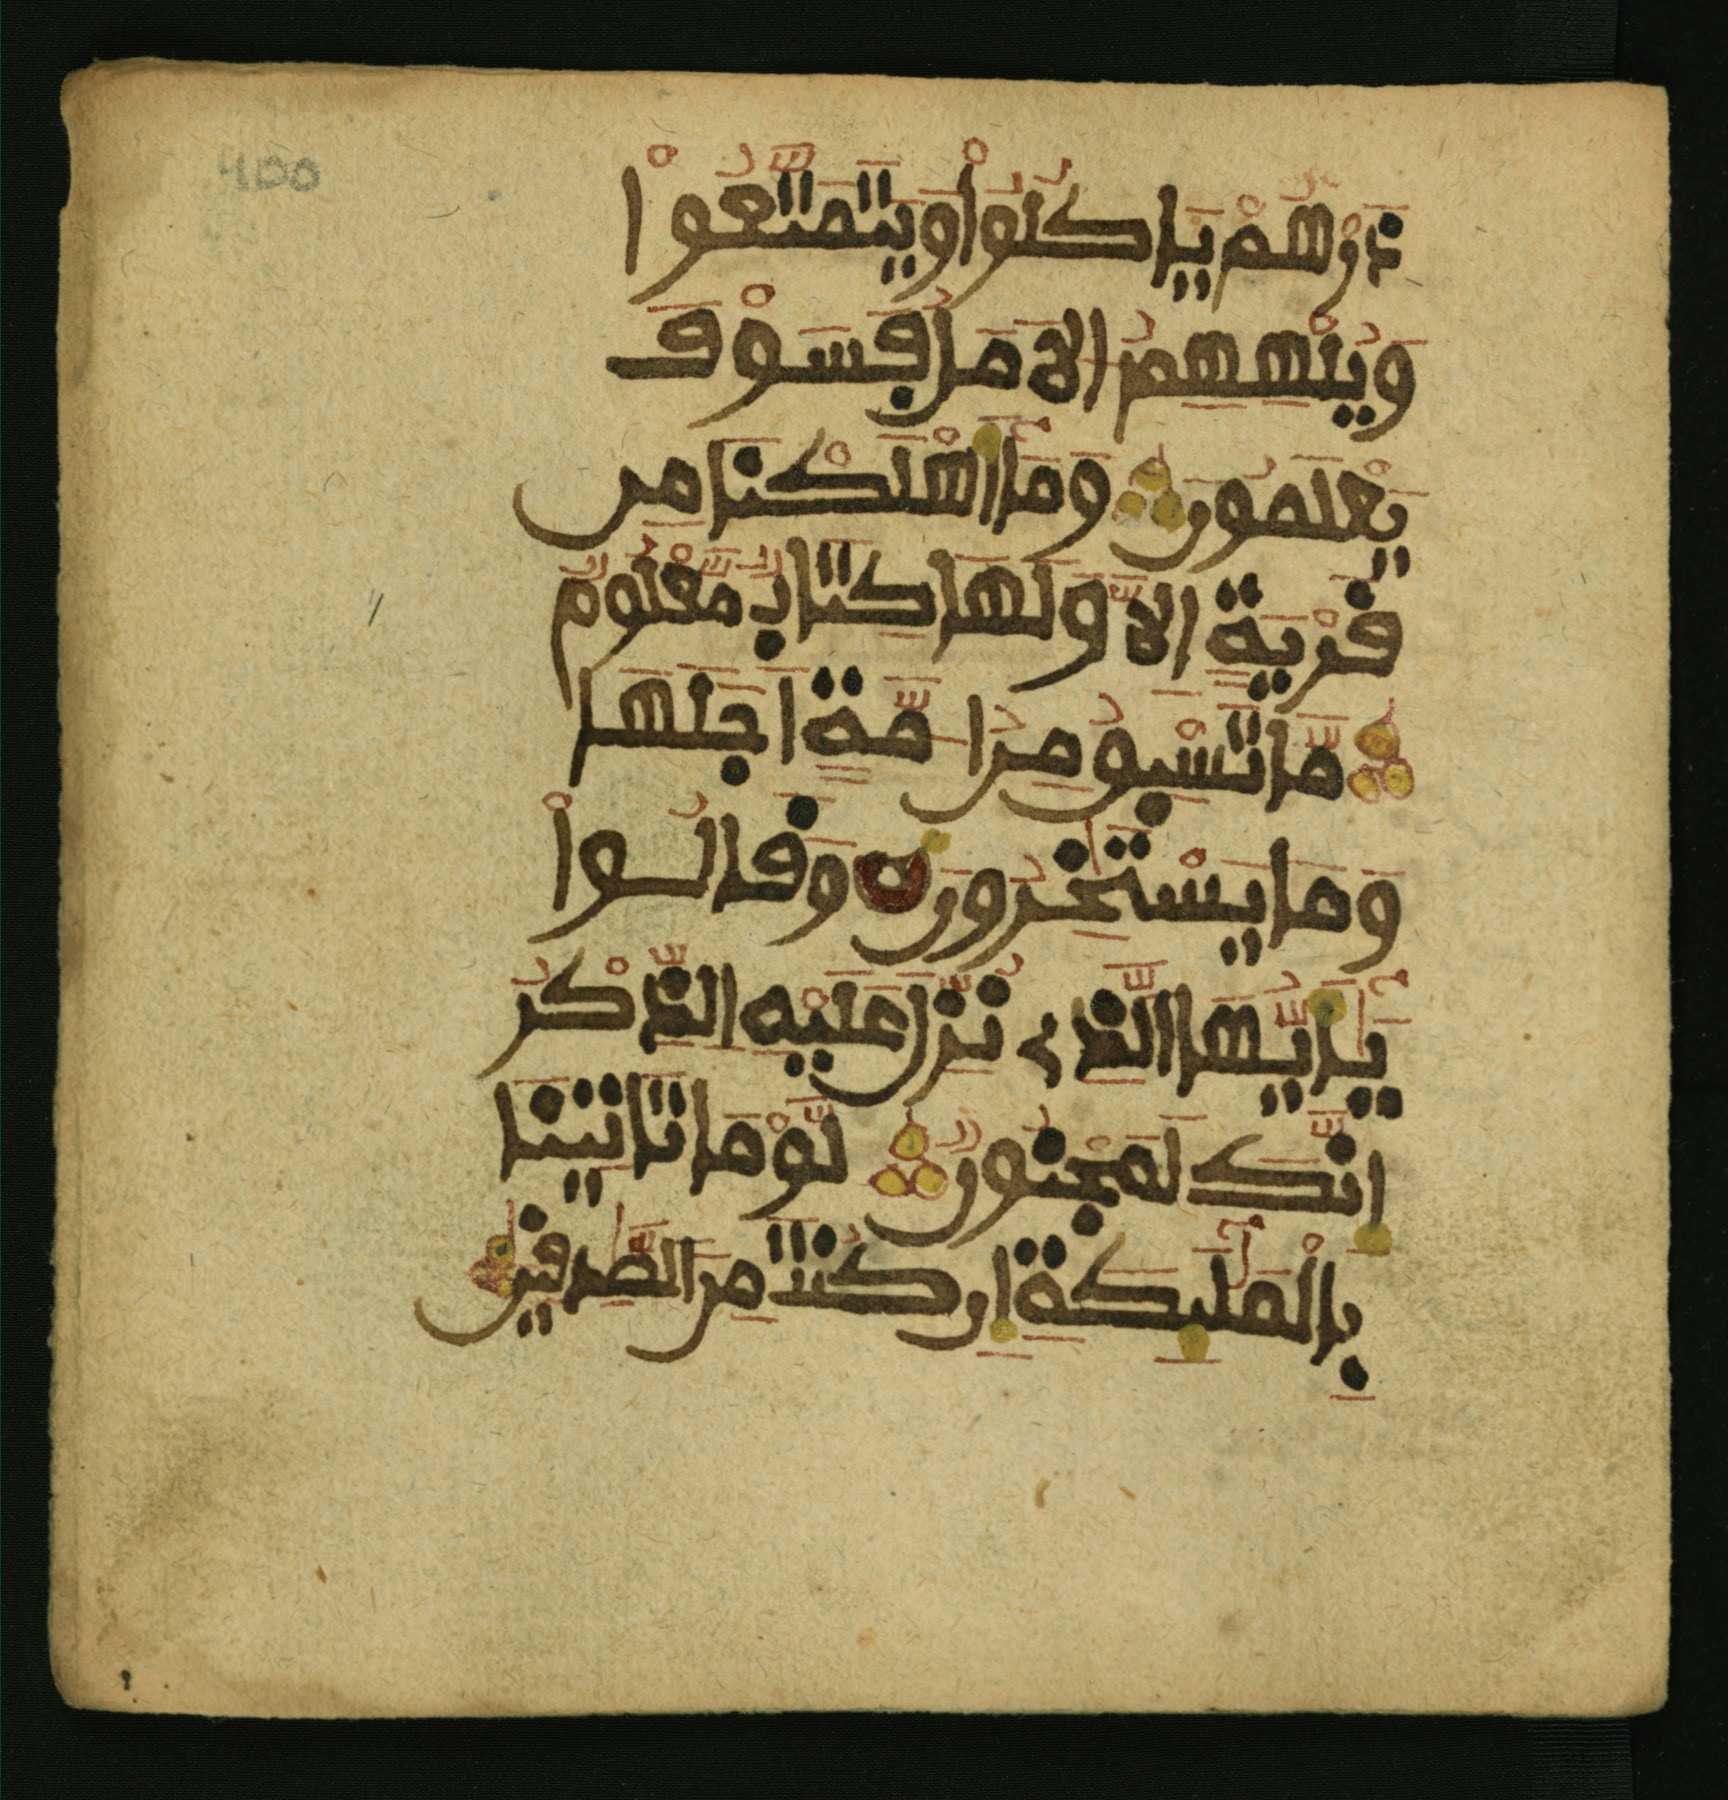 400
ذَرْهُمْ يَاكُلُواْ وَيَتَمَتَّعُواْ
وَيُلْهِهِمُ الَامَلُ فَسَوْفَ
يَعْلَمُونَ وَمَا أَهْلَكْنَا مِن
قَرْيَةٍ اِلَّا وَلَهَا كِتَابٌ مَّعْلُومٌ
مَّا تَسْبِقُ مِنُ امَّةٍ اَجَلَهَا
وَمَا يَسْتَخِرُونَ وَقَالُواْ
يَأَيُّهَا الَّذِے نُزِّلَ عَلَيْهِ الذِّكْرُ
إِنَّكَ لَمَجْنُونٌ لَّوْمَا تَاتِينَا
بِالْمَلَٰئِكَةِ إِن كُنتَ مِنَ الصَّٰدِقِينَ